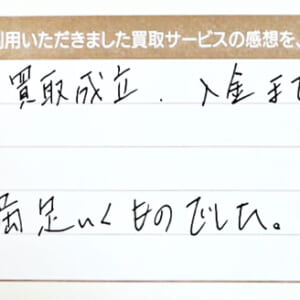 利用いただきました買取サービスの感想を、
買取成立、入金まで
満足いくものでした。